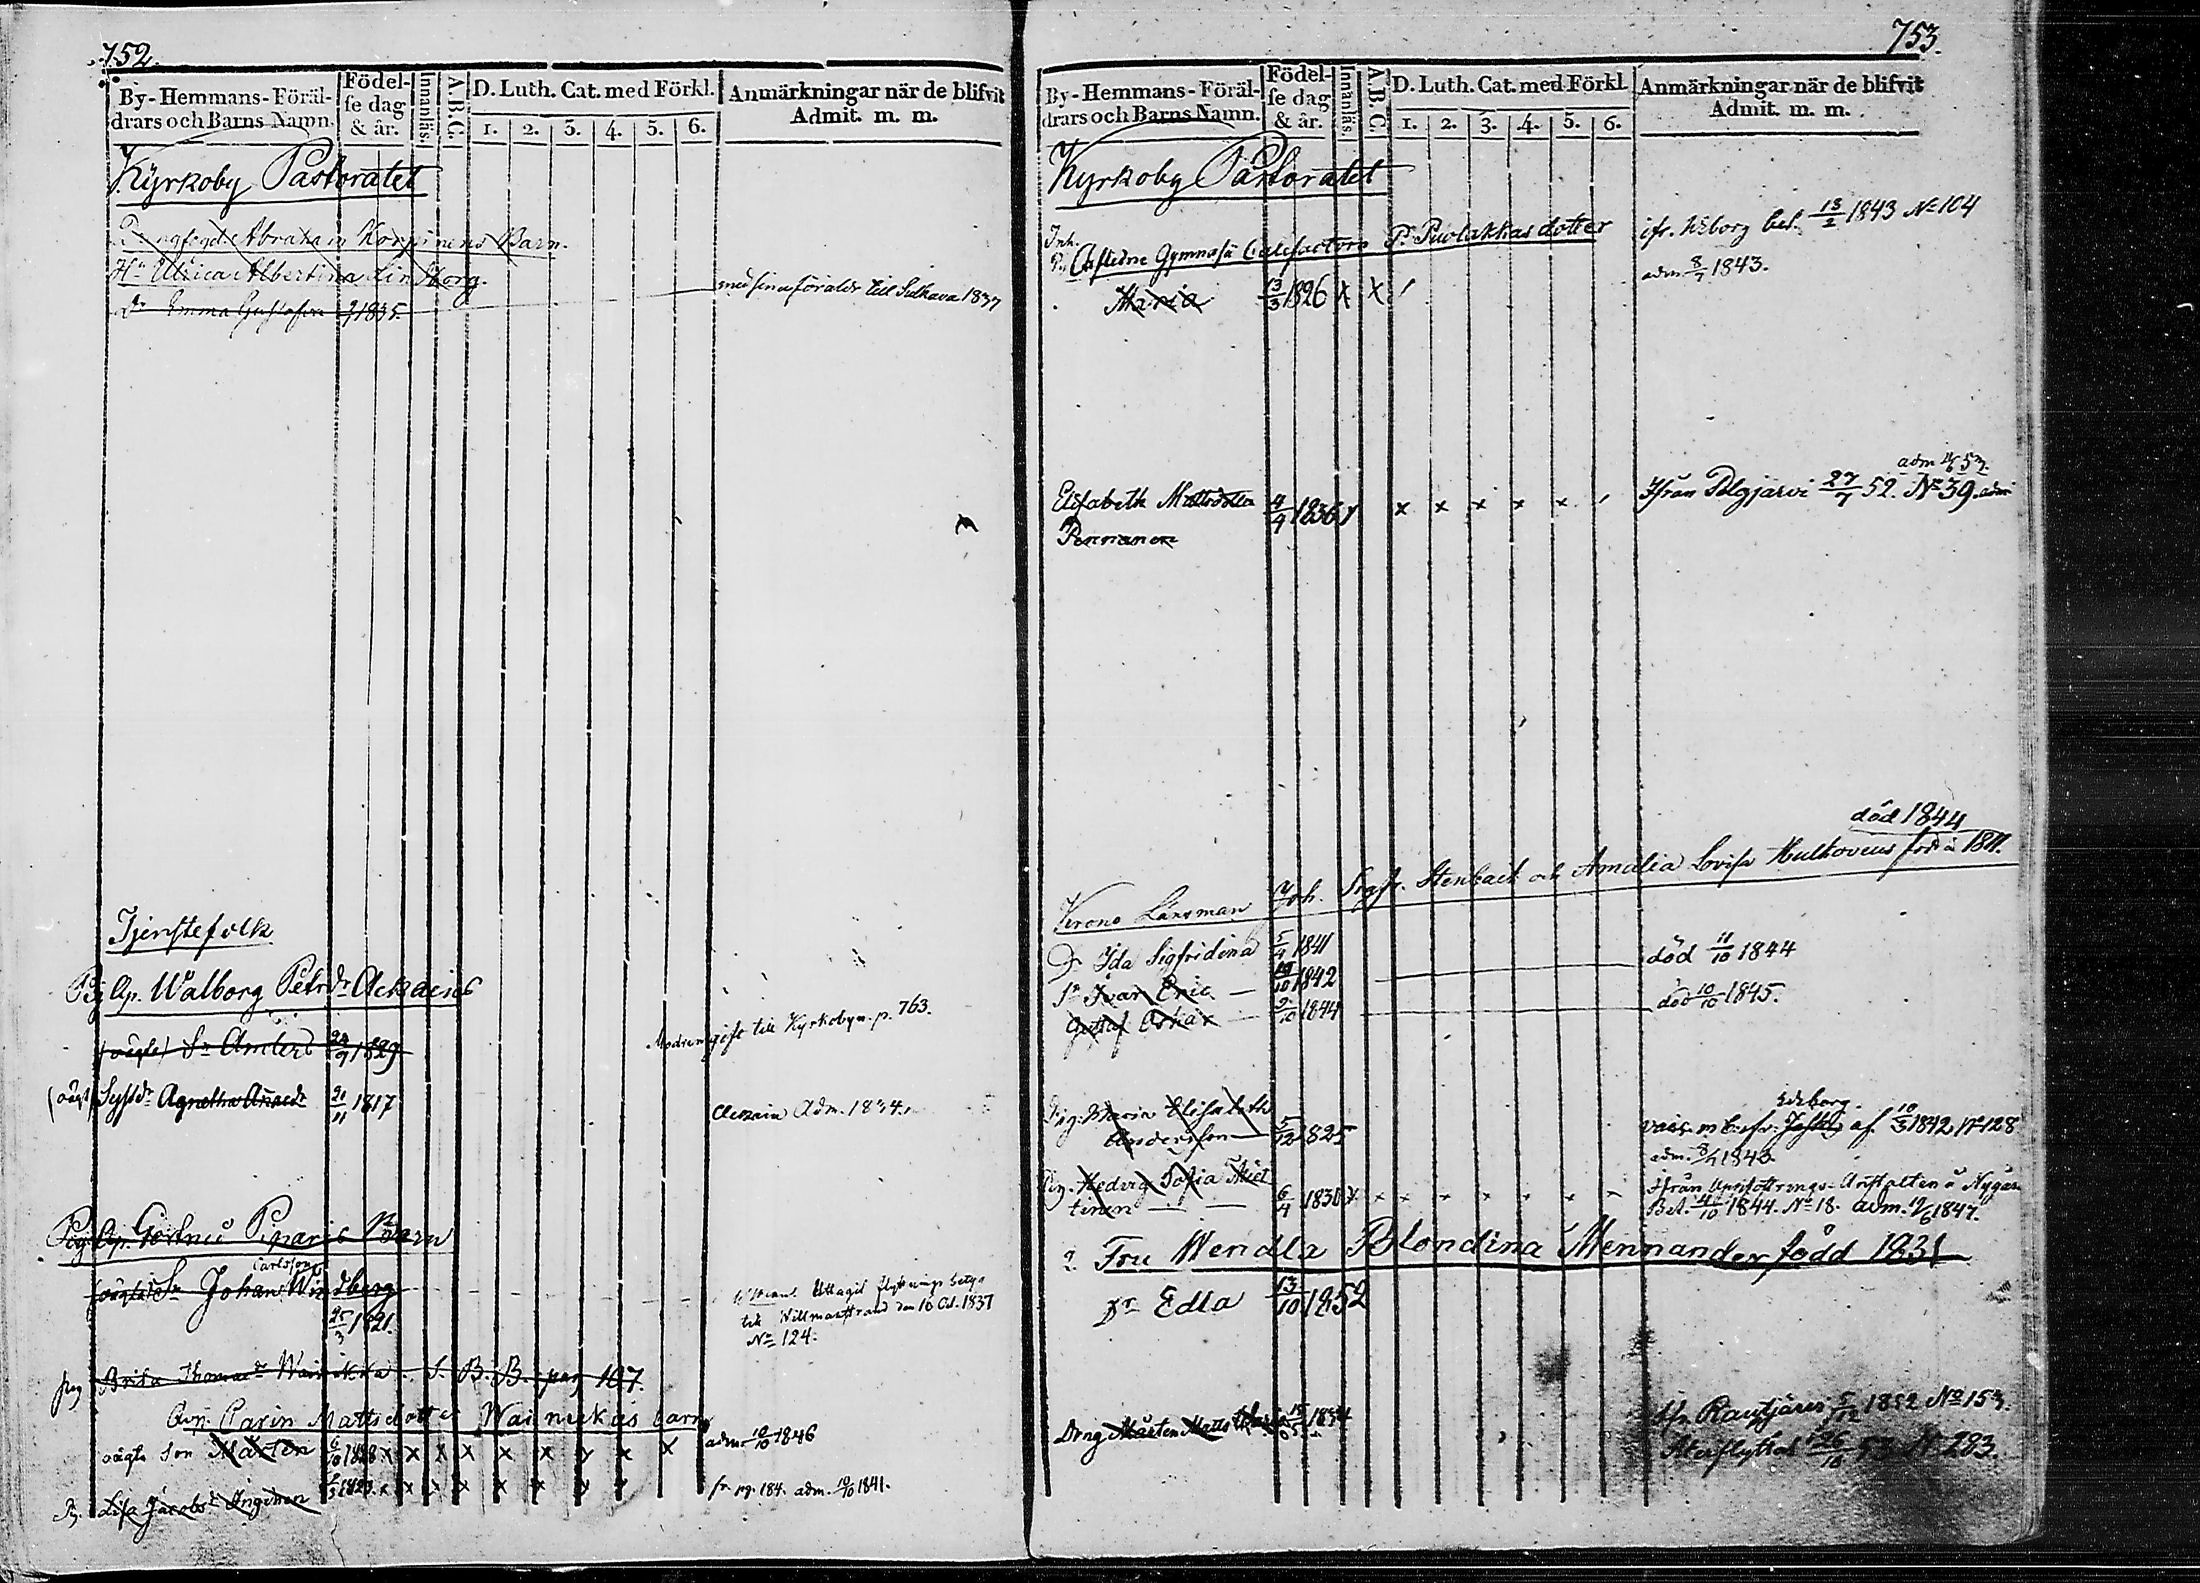 752.
By-Hemmans-Föräl-
drars och Barns Namn.
Födel-
se dag
& år.
Innanläs.
A.B.C.
D. Luth. Cat. med Förkl.
1. 2. 3. 4. 5. 6.
Anmärkningar när de blifvit
Admit. m. m.
Kyrkoby Pastoratet
Abraham Korpinens Barn.
Hu Ulrica Albertina Lindborg.
dr Emma Gustafva 1835. med sina föräldr till Sulkava 1837
Tjenstefolk
Pig Ap. Walborg Petrdr Ackains
(oägta) Sn Anders 1829 Modren gift till Kyrkobyn p. 763.
(oägt) Systdr Agnetha 21/11 1817 Ackain Adm. 1834.
Pig Ap. Piparis Barn
Carlsson
(oägta) Sn Johan Windberg
25/3 1821.
Uttagit flyttnings betyg
till Willmanstrand den 16 Oct. 1837
No 124.
pig Brita Thomasdr Wainikka S. B. B. pag 107.
Carin Mattsdotter Wainickas barn
oägta son Mårten 6/10 1828 x x x x x x x x x adm. 10/10 1846
P. Lisa Jacobsdr Inginen 1823 x x x x x x x x fr pg. 184. adm. 10/10 1841.
753.
By-Hemmans-Föräl-
drars och Barns Namn.
Födel-
se dag
& år.
Innanläs.
A.B.C.
D. Luth. Cat. med Förkl.
1. 2. 3. 4. 5. 6.
Anmärkningar när de blifvit
Admit. m. m.
Kyrkoby Pastoratet
Inh.
Afledne Gymnasii Calefactors P. Puolakkas dotter ifr. Wiborg bet. 13/2 1843 No 104
Maria 13/3 1826 x x / adm 8/7 1843.
adm 53.
Elisabeth Mattsdotter 4/4 1836 x x x x x ifrån Pelgjärvi 27/7 52. No 39.
Pennanen
död 1844
Krono Länsman Joh. Sigfr. Stenbäck och Amalia Lovisa Hulkovius född år 1811.
Dr Ida Sigfridina 5/4 1841 död 11/10 1844
Sn Ivar Eric 1842 död 10/10 1845.
Gustaf Oskar 2/10 1844
Pig. Maria Elisabeth
Andersson 5/12 1825
Wiborg
af 10/3 1842 No 128
adm. 8/7 1843.
Pig. Hedvig Sofia Miet
tinen 6/4 1830 x x x x x x x
ifrån Uprisfostrings-Anstalten å Nygår
Bet. 4/10 1844. No 18. adm. 1847.
2 Fru Wendla Blondina Mennander född 1831
Dr Edla 13/10 1852
Drng Mårten Matts 1834 ifr Rautjärvi 5/12 1852 No 153.
Återflyttat 26/10 53 N 283.